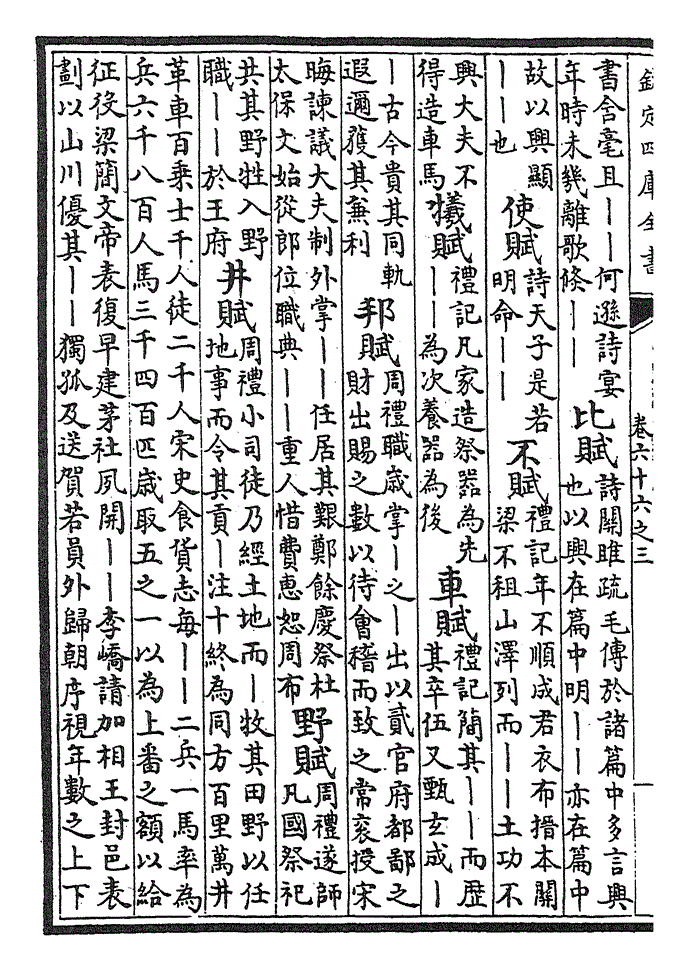 欽定四庫全書
卷六十六之三
書含毫且——何遜詩宴
年時未幾離歌倏——
比賦
詩關雎疏毛傳於諸篇中多言興
也以興在篇中明——亦在篇中
故以興顯
——也
使賦
詩天子是若
明命——
不賦
禮記年不順成君衣布搢本關
梁不租山澤列而——土功不
興大夫不
得造車馬
犧賦
禮記凡家造祭器為先
——為次養器為後
車賦
禮記簡其——而歷
其卒伍又甄玄成—
—古今貴其同軌
遐邇獲其兼利
邦賦
周禮職歲掌—之—出以貳官府都鄙之
財出賜之數以待會稽而致之常袞授宋
晦諫議大夫制外掌——任居其艱鄭餘慶祭杜
太保文始從郎位職典——重人惜費惠恕周布
野賦
周禮遂師
凡國祭祀
共其野牲入野
職——於王府
井賦
周禮小司徒乃經土地而—牧其田野以任
地事而令其貢—注十終為同方百里萬井
革車百乘士千人徒二千人宋史食貨志每——二兵一馬率為
兵六千八百人馬三千四百匹歲取五之一以為上番之額以給
征役梁簡文帝表復早建茅社夙開——李嶠請加相王封邑表
劃以山川優其——獨孤及送賀若員外歸朝序視年數之上下